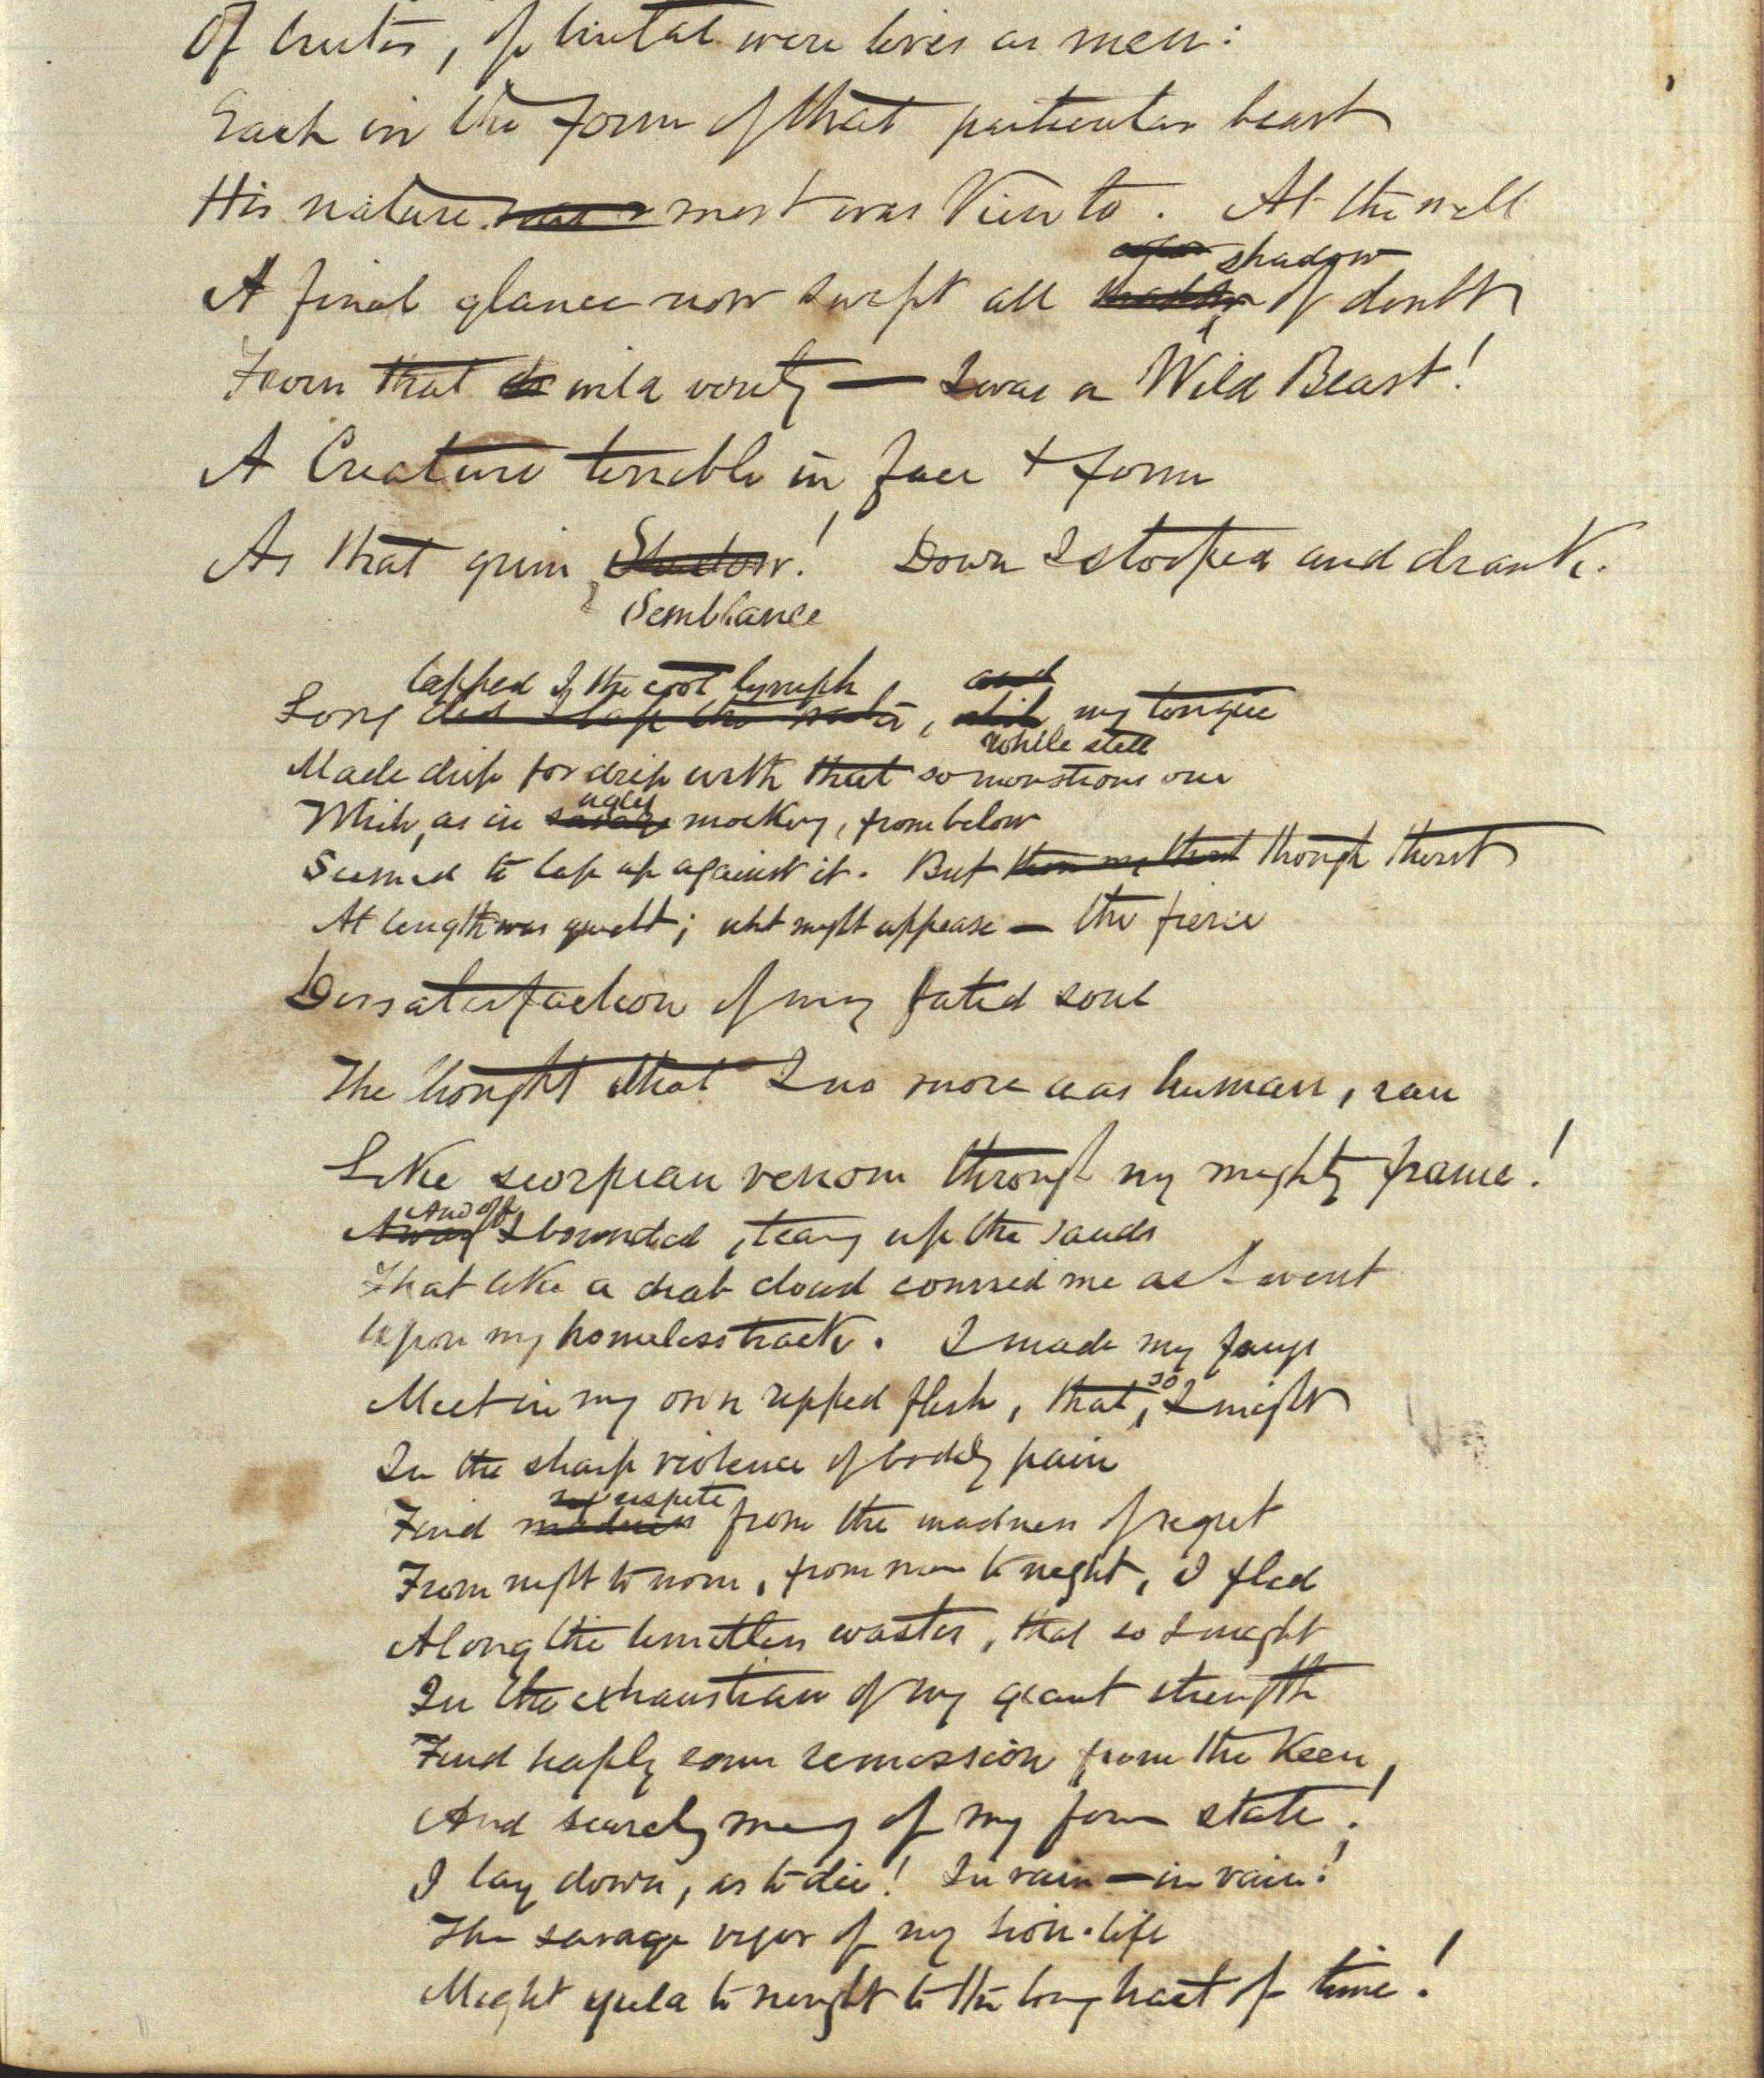 Of brutes, if brutal were lives as men:
Each in the form of that particular beast
His nature most was kin to. At the well
A final glance now swept all shadow of doubt
From that wild verity — I was a Wild Beast!
A Creature terrible in face + form
As that grim Shadow! Down I stooped and drank.
Semblance
lapped I the cool lymph, and
Long did I lap the water, my tongue
while still
Made drip for drip with that so monstrous one
Which, as in savage ugly mockery, from below
Seemed to lap up against it. But then my thirst though thirst
At length was quelt; what might appease — the fierce
Dissatisfaction of my fated soul
The thought that I no more was human, ran
Like scorpion venom through my mighty frame!
And off
Away I bounded, tearing up the sands
That like a drab cloud covered me as I went
Upon my homeless track. I made my fangs
Meet in my own ripped flesh, that, so I might
In the sharp violence of bodily pain
respite
Find madness from the madness of regret
From night to morn, from morn to night, I fled
Along the limitless wastes, that so I might
In the exhaustion of my giant strength
Find haply some remission from the keen,
And searching misery of my former state!
I lay down, as to die! In vain — in vain!
The savage vigor of my lion-life
Might yield to nought to the long haet of time!